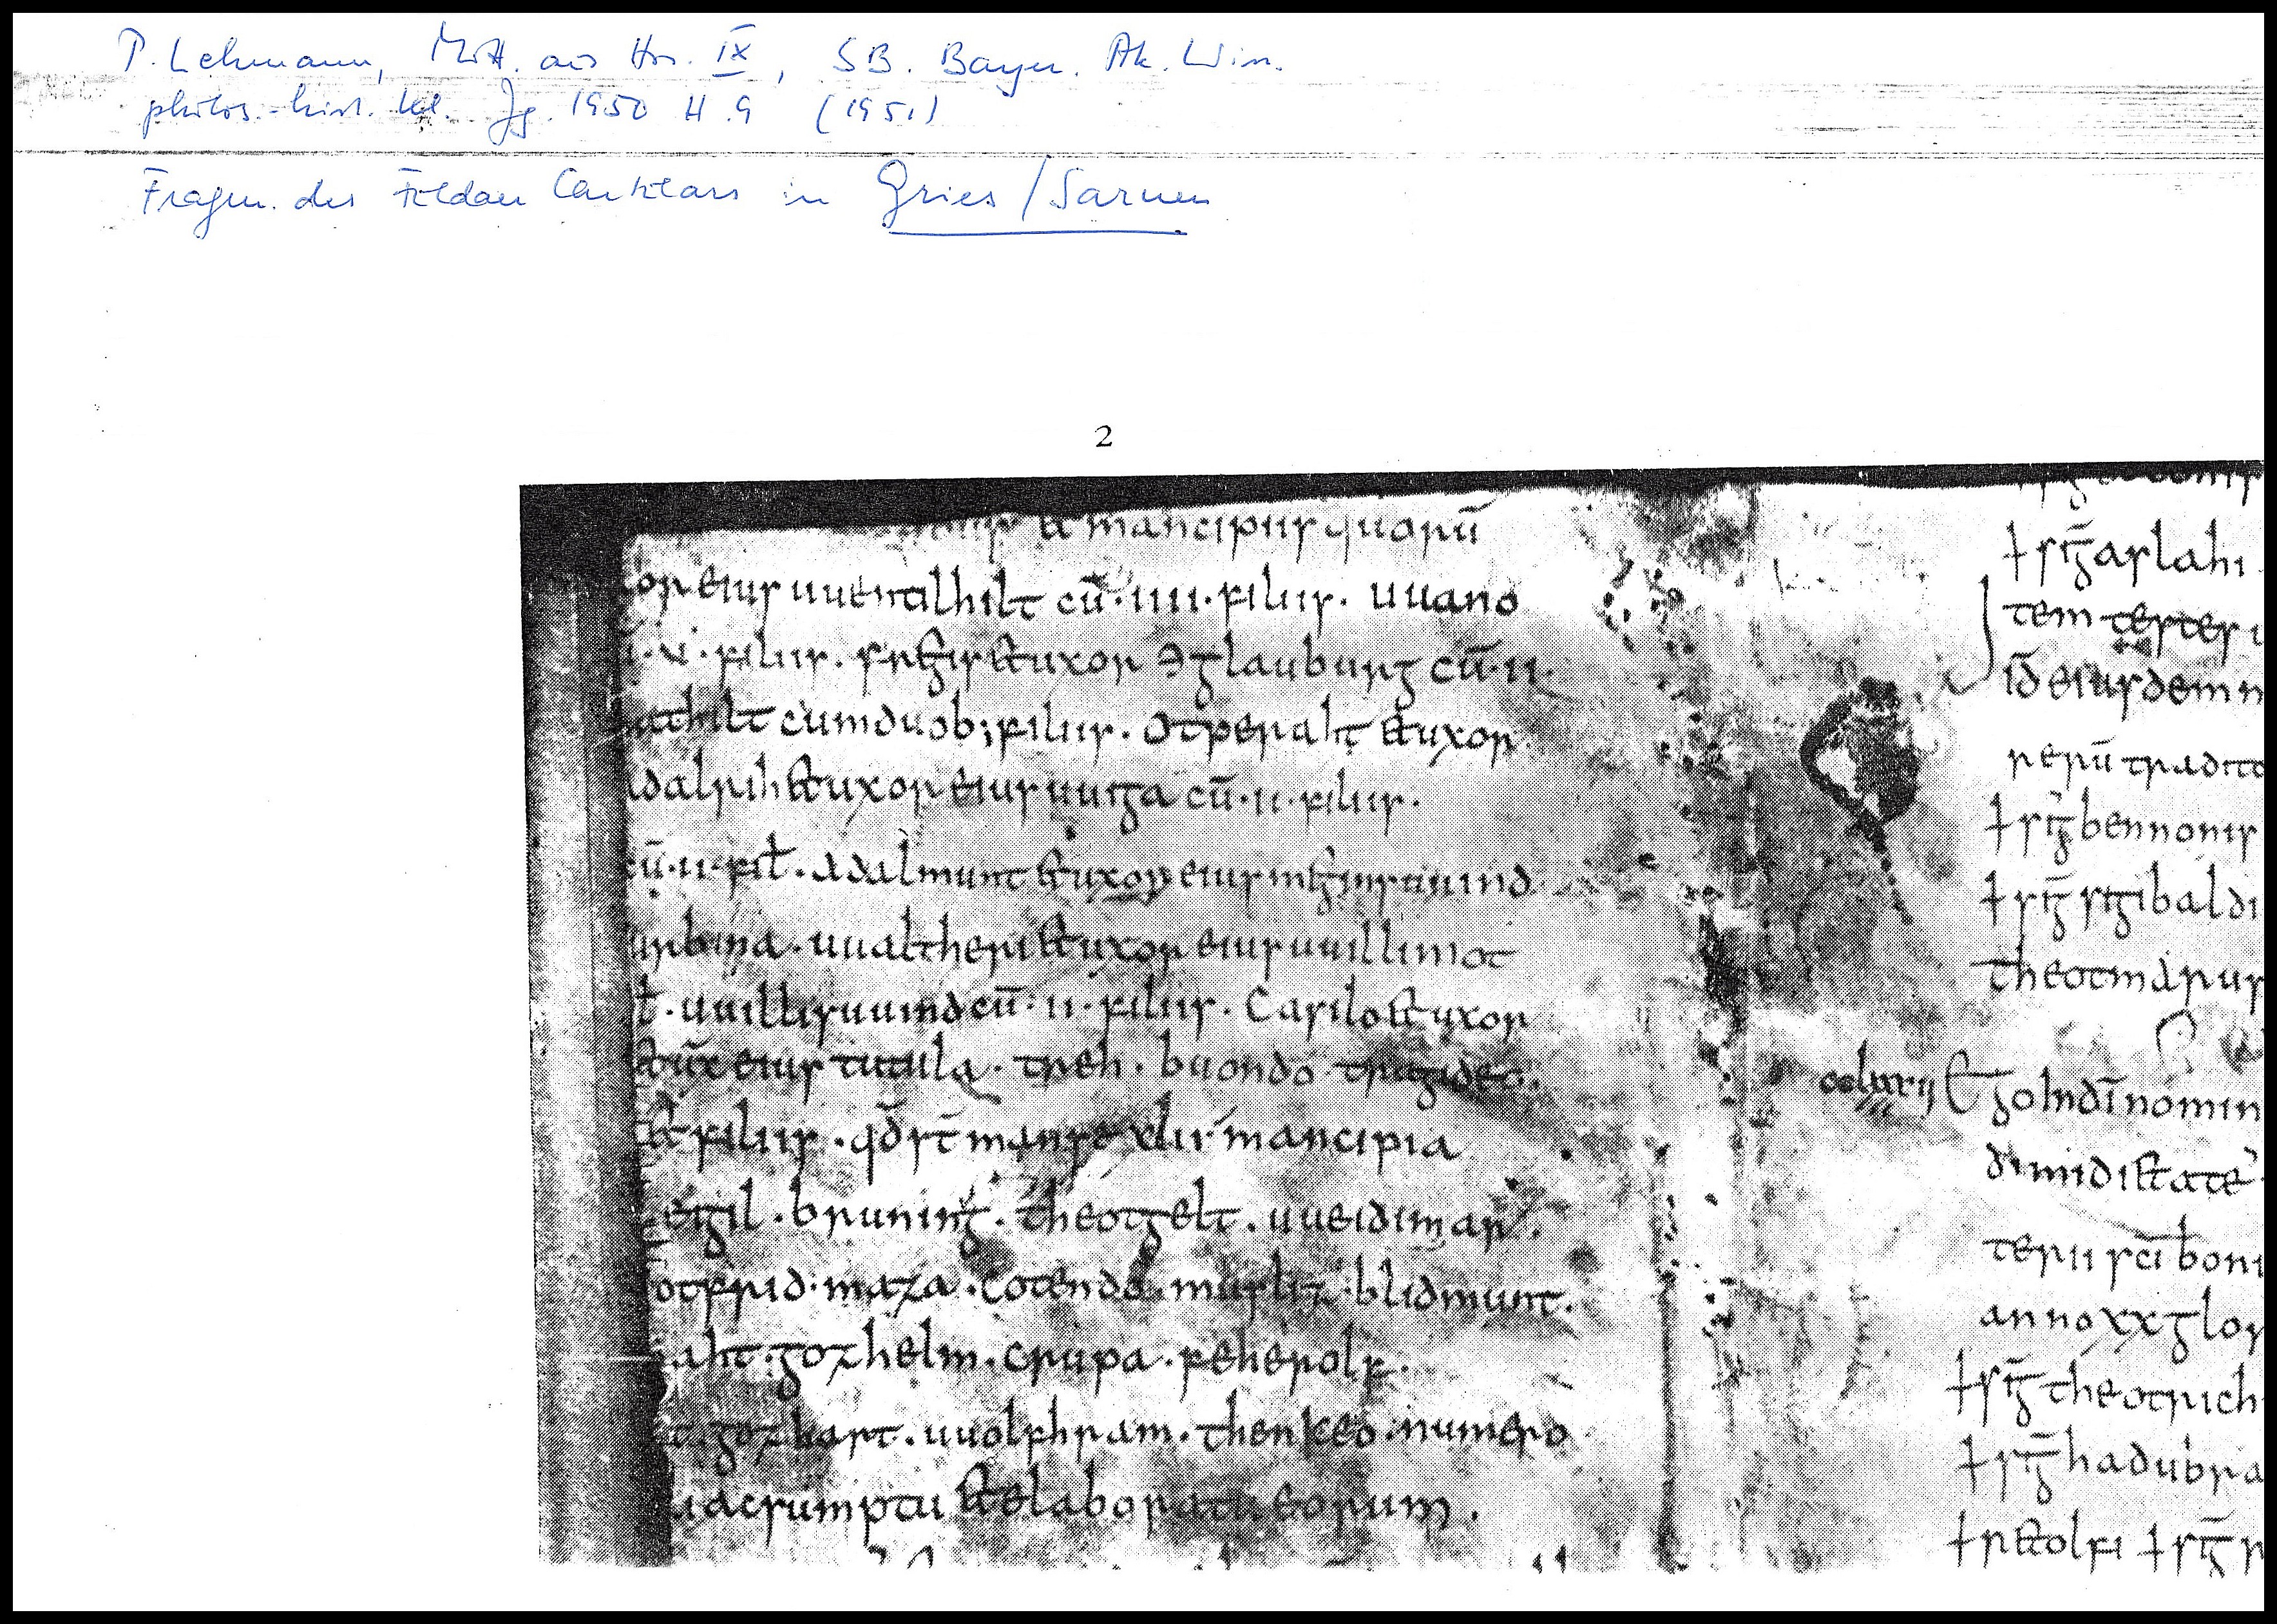 P. Lehmann, Mitt. aus Hss. IX, SB. Bayer. Ak. Wiss.
philos.-hist. Kl. Jg. 1950 H. 9 (1951)
Fragm. des Fuldaer Cartulars in Gries/Sarnen
2
& mancipiis quorū
or eius uuentilhilt cū·iiii·filiis· uuano
·v·filiis· &uxor Oglauburg cū·ii·
athilt cumduob; filiis· Otperaht &uxor
adalrih &uxor eius uuiga cū·ii·filiis·
cū·ii·fil· Adalmunt &uxor eius
uualtheri &uxor eius uuillimot
uuillisuuind cū·ii·filiis· Casilo &uxor
&ux eius tutila· treh· buondo
filiis· qđ sī mancipia
eigil· bruning· theotgelt· uueidimar·
otfrid· maza· cotendo· blidmunt·
aht· gozhelm· crupa· feherolf·
gozhart· uuolfhram· thenkeo· numero
adsumptu &elaboratu eorum·
†sīg aslahi
tem testes i
id eiusdem n
rerū tradito
†sīg bennonis
†sīg sigibaldi
theotmarus
golndī nomin
dimidi&atē
terii sci boni
anno xx glor
†sīg theotrich
†sīg hadubra
†r&olfi †sīg r